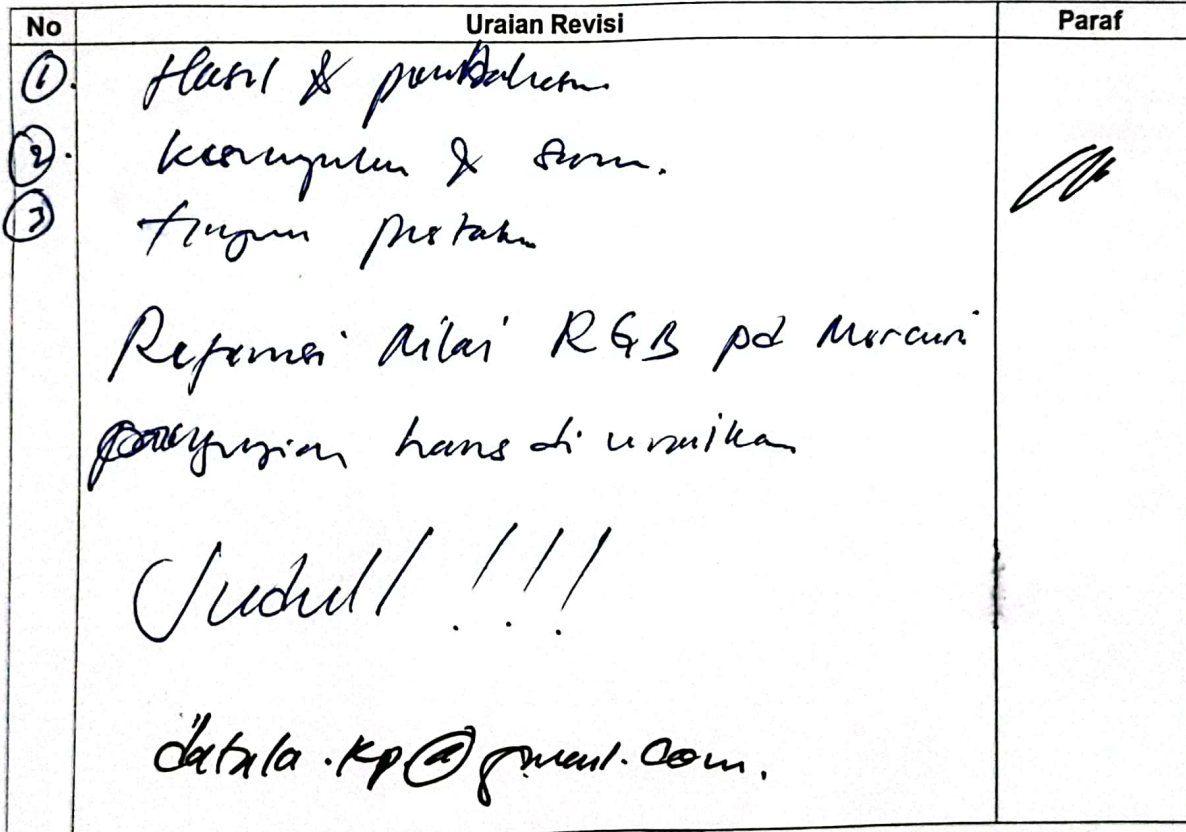 No Uraian Revisi Paraf
1. Hasil & pembahasan
2. Kesimpulan & saran.
3 tinjauan pustaka
Referensi nilai RGB pd Mercuri
pengujian harus di uraikan
Judul! !!!